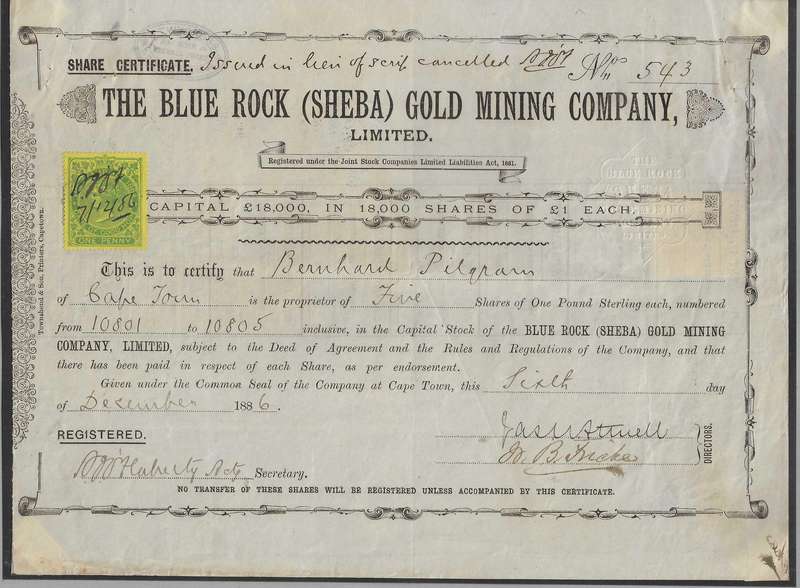 SHARE CERTIFICATE. Issued in lieu of scrip cancelled Nos 543
THE BLUE ROCK (SHEBA) GOLD MINING COMPANY,
LIMITED.
Registered under the Joint Stock Companies Limited Liabilities Act, 1861.
THE
BLUE ROCK
7/12/86
ONE PENNY
CAPITAL £18,000, IN 18,000 SHARES OF £1 EACH.
This is to certify that Bernhard Pilgram
of Cape Town is the proprietor of Five Shares of One Pound Sterling each, numbered
from 10801 to 10805 inclusive, in the Capital Stock of the BLUE ROCK (SHEBA) GOLD MINING
COMPANY, LIMITED, subject to the Deed of Agreement and the Rules and Regulations of the Company, and that
there has been paid in respect of each Share, as per endorsement.
Given under the Common Seal of the Company at Cape Town, this Sixth day
of Desember 1886.
REGISTERED.
DIRECTORS.
Secretary.
NO TRANSFER OF THESE SHARES WILL BE REGISTERED UNLESS ACCOMPANIED BY THIS CERTIFICATE.
Townshend & Son, Printers, Capetown.